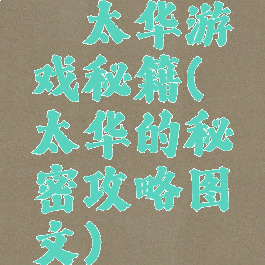 太华游
戏秘籍(
太华的秘
密攻略图
文)